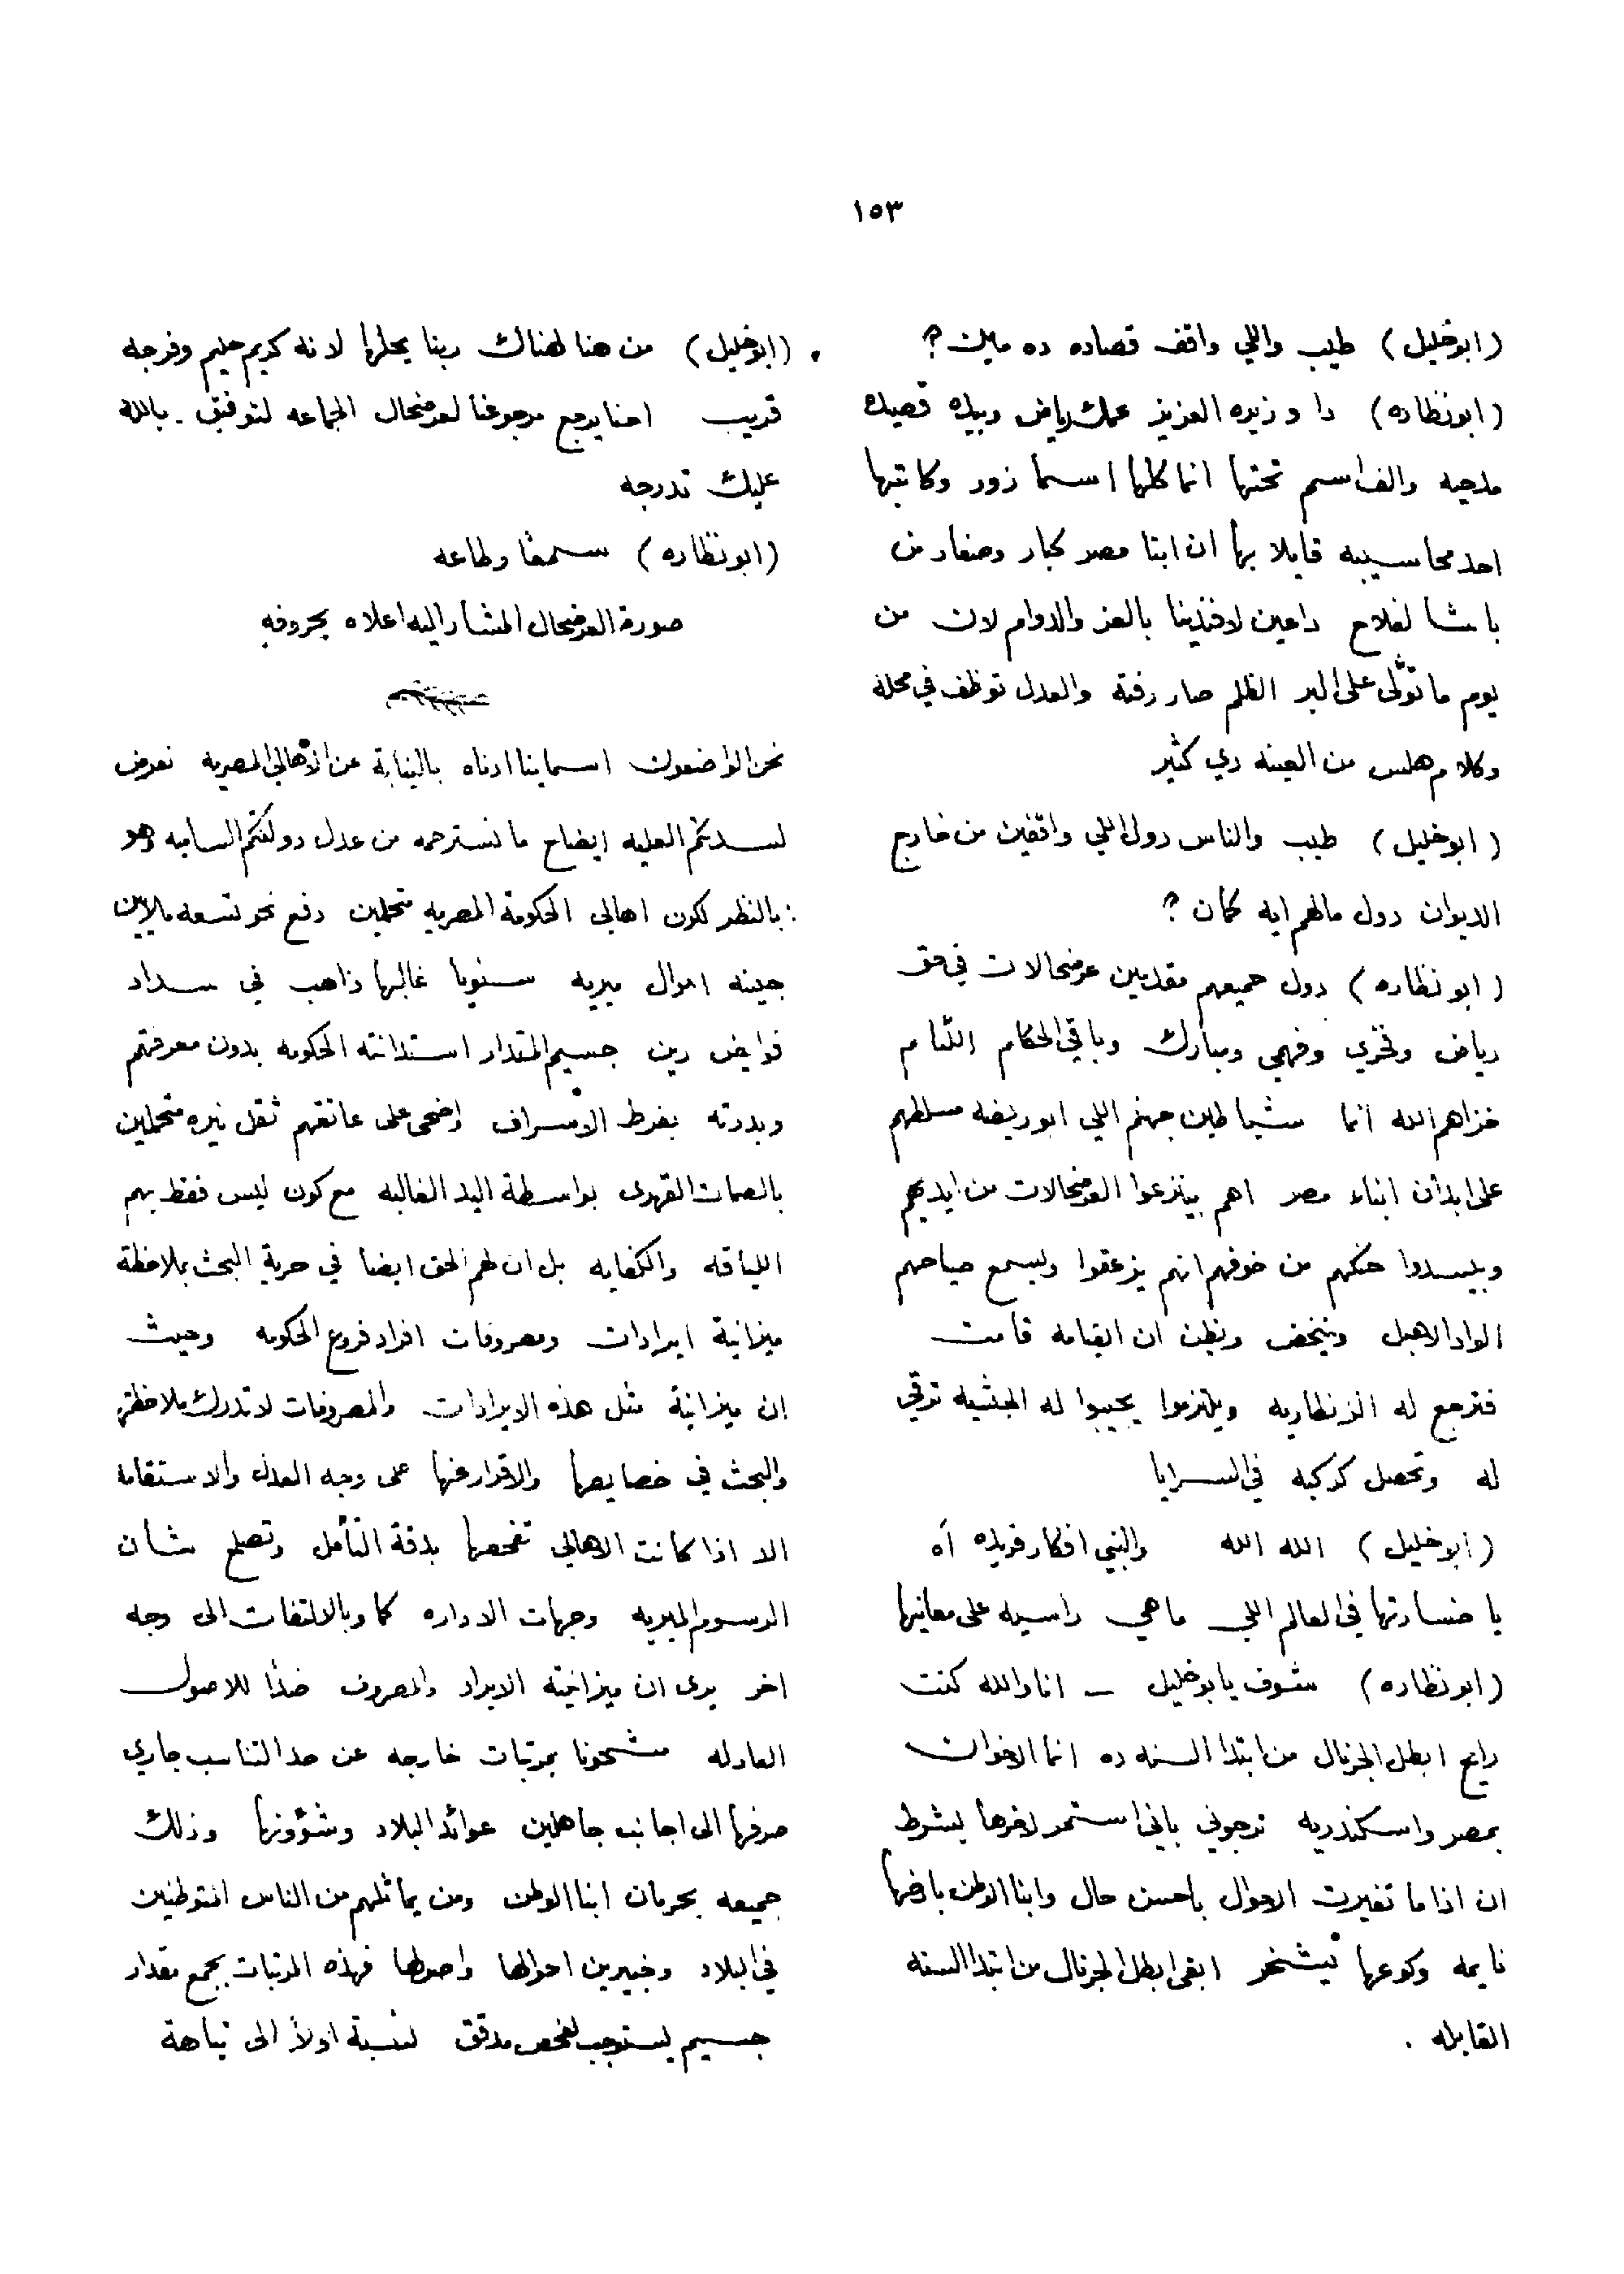 ١٥٣
(ابوخليل) طيب واللي واقف قصاده ده مين ؟
(ابونظاره) دا وزيره العزيز عمك رياض وبيده قصيده
مدحيه والف اسم تحتها انما كلها اسما زور وكاتبها
احد محاسيبه قايلا بها ان ابنا مصر كبار وصغار من
باشا لفلاح داعين لافندينا بالعز والدوام لان من
يوم ما تولّى على البر الظلم صار رفته والعدل توظف في محله
وكلام هلس من العينه دي كثير
(ابوخليل) طيب والناس دول اللي واقفين من خارج
الديوان دول مالهم ايه كمان ؟
(ابونظاره) دول جميعهم مقدمين عرضحالات في حق
رياض وفخري وفهمي ومبارك وباقي الحكام اللئام
خزاهم الله انما شياطين جهنم اللي ابوريضه مسلطهم
على ابدان ابناء مصر اهم بينزعوا العرضحالات من ايديهم
وبيسدوا حنكهم من خوفهم انهم يزعقوا ويسمع صياحهم
الواد الاهبل وينخض ويظن ان القيامه قامت
فترجع له الزنطاريه ويلتزموا يجيبوا له الجشيه ترقي
له وتحصل كركبه في السرايا
(ابوخليل) الله الله والنبي افكار فريده آه
يا خسارتها في العالم اللي ماهي راسيه على معانيها
(ابونظاره) شوف يابوخليل — انا والله كنت
رايح ابطل الجرنال من ابتدا السنه ده انما الاخوان
بمصر واسكندريه ترجوني باني استمر لاخرها بشرط
ان اذا ما تغيرت الاحوال باحسن حال وابنا الوطن باخرها
نايمه وكوعها بيشخر ابقى ابطل الجرنال من ابتدا السنه
القابله .
(ابوخليل) من هنا لهناك ربنا يحلها لانه كريم حليم وفرجه
قريب احنا يرجع مرجوعنا لعرضحال الجماعه لتوفيق . بالله
عليك تدرجه
(ابونظاره) سمعًا وطاعه
صورة العرضحال المشار اليه اعلاه بحروفه
نحن الواضعون اسماينا ادناه بالنيابة عن الاهالي المصريه نعرض
لسدتكم العليه ايضاح ما نسترحمه من عدل دولتكم الساميه وهو
: بالنظر لكون اهالي الحكومة المصريه متحملين دفع نحو تسعه ملايين
جينه اموال ميريه سنويا غالبها ذاهب في سداد
فوايض دين جسيم المقدار استدانته الحكومه بدون معرفتهم
وبدرته بفرط الاسراف اضحى على عاتقهم ثقل نيره متحملين
بالصمات القهرى بواسطة اليد الغالبه مع كون ليس فقط بهم
اللياقه والكفايه بل ان لهم الحق ايضا في حرية البحث بملاحظة
ميزانية ايرادات ومصروفات افراد فروع الحكومه وحيث
ان ميزانية مثل هذه الايرادات والمصروفات لا تدرك ملاحظتها
والبحث في خصايصها والاقرار عنها على وجه العدل والاستقامه
الا اذا كانت الاهالي تفحصها بدقة التأمل وتصلح شان
الرسوم الميريه وجهات الاداره كما وبالالتفات الى وجه
اخر يرى ان ميزانية الايراد والمصروف ضدًا للاصول
العادله مشحونا بمرتبات خارجه عن حد التناسب جاري
صرفها الى اجانب جاهلين عوائد البلاد وشؤونها وذلك
جميعه بحرمان ابنا الوطن ومن يماثلهم من الناس المتوطنين
في البلاد وخبيرين احوالها واصولها فهذه المرتبات بجمع مقدار
جسيم يستوجب لفحص مدقق لنسبة اولاً الى نباهة